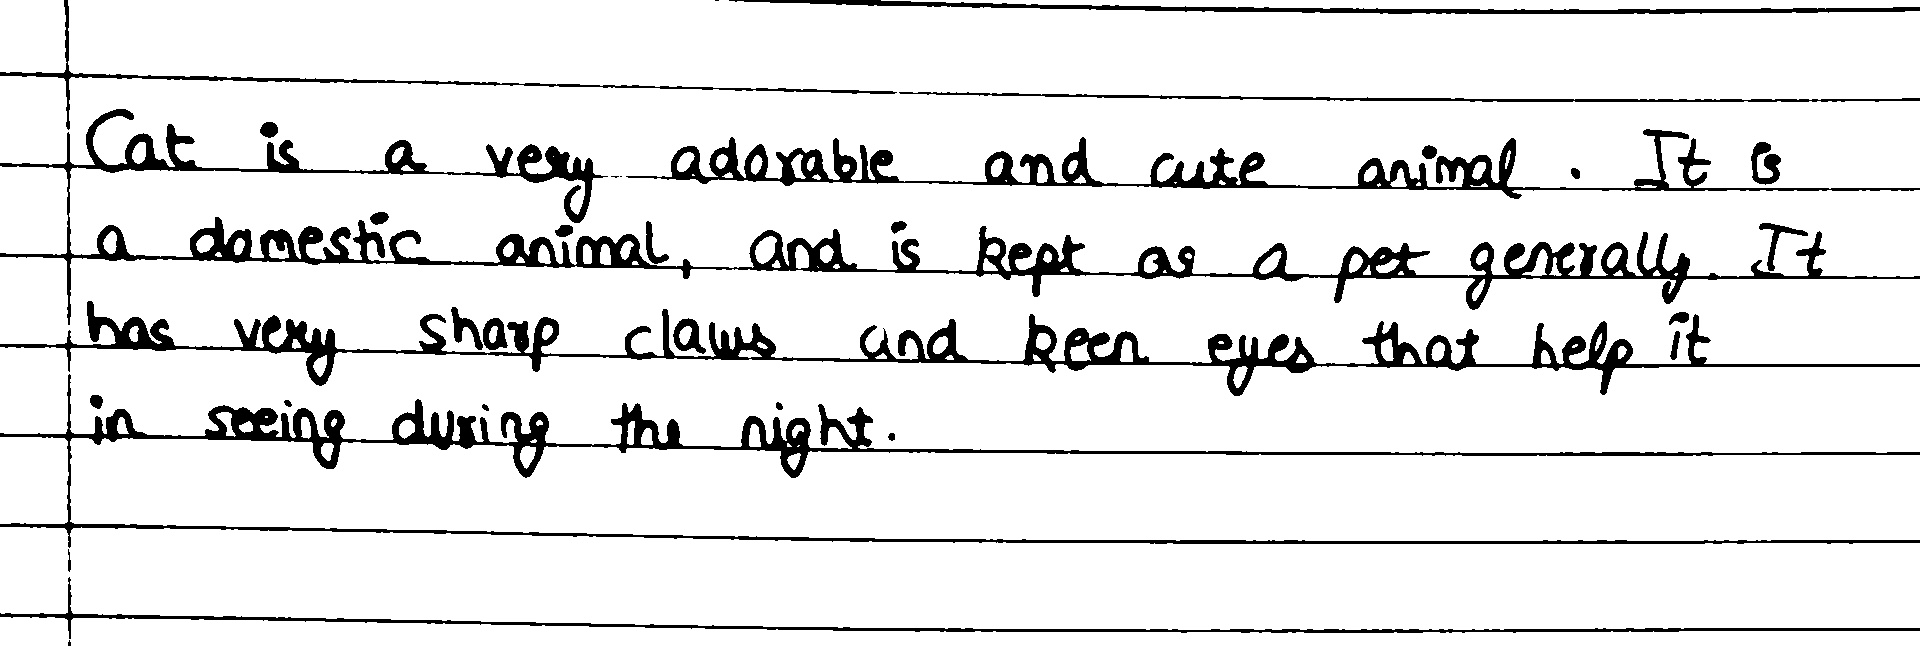 Cat is a very adorable and cute animal. It is
a domestic animal, and is kept as a pet generally. It
has very sharp claws and keen eyes that help it
in seeing during the night.